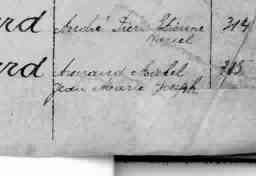 ard André Pierre Etienne 314
Marcel
ard Armand Michel 315
Jean Marie Joseph